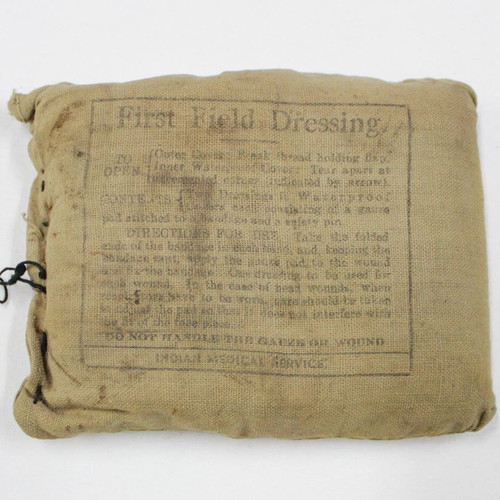 First Field Dressing
TO Outer Cover: Break thread holding flap.
OPEN Inner Waterproof Cover: Tear apart at
uncemented corner (indicated by arrow).
CONTENTS—Two Dressings in Waterproof
covers each consisting of a gauze
pad stitched to a bandage and a safety pin.
DIRECTIONS FOR USE Take the folded
ends of the bandage in each hand, and, keeping the
bandage taut, apply the gauze pad to the wound
and fix the bandage. One dressing to be used for
each wound. In the case of head wounds, when
respirators have to be worn, care should be taken
to adjust the pad so that it does not interfere with
the fit of the face piece.
DO NOT HANDLE THE GAUZE OR WOUND
INDIAN MEDICAL SERVICE